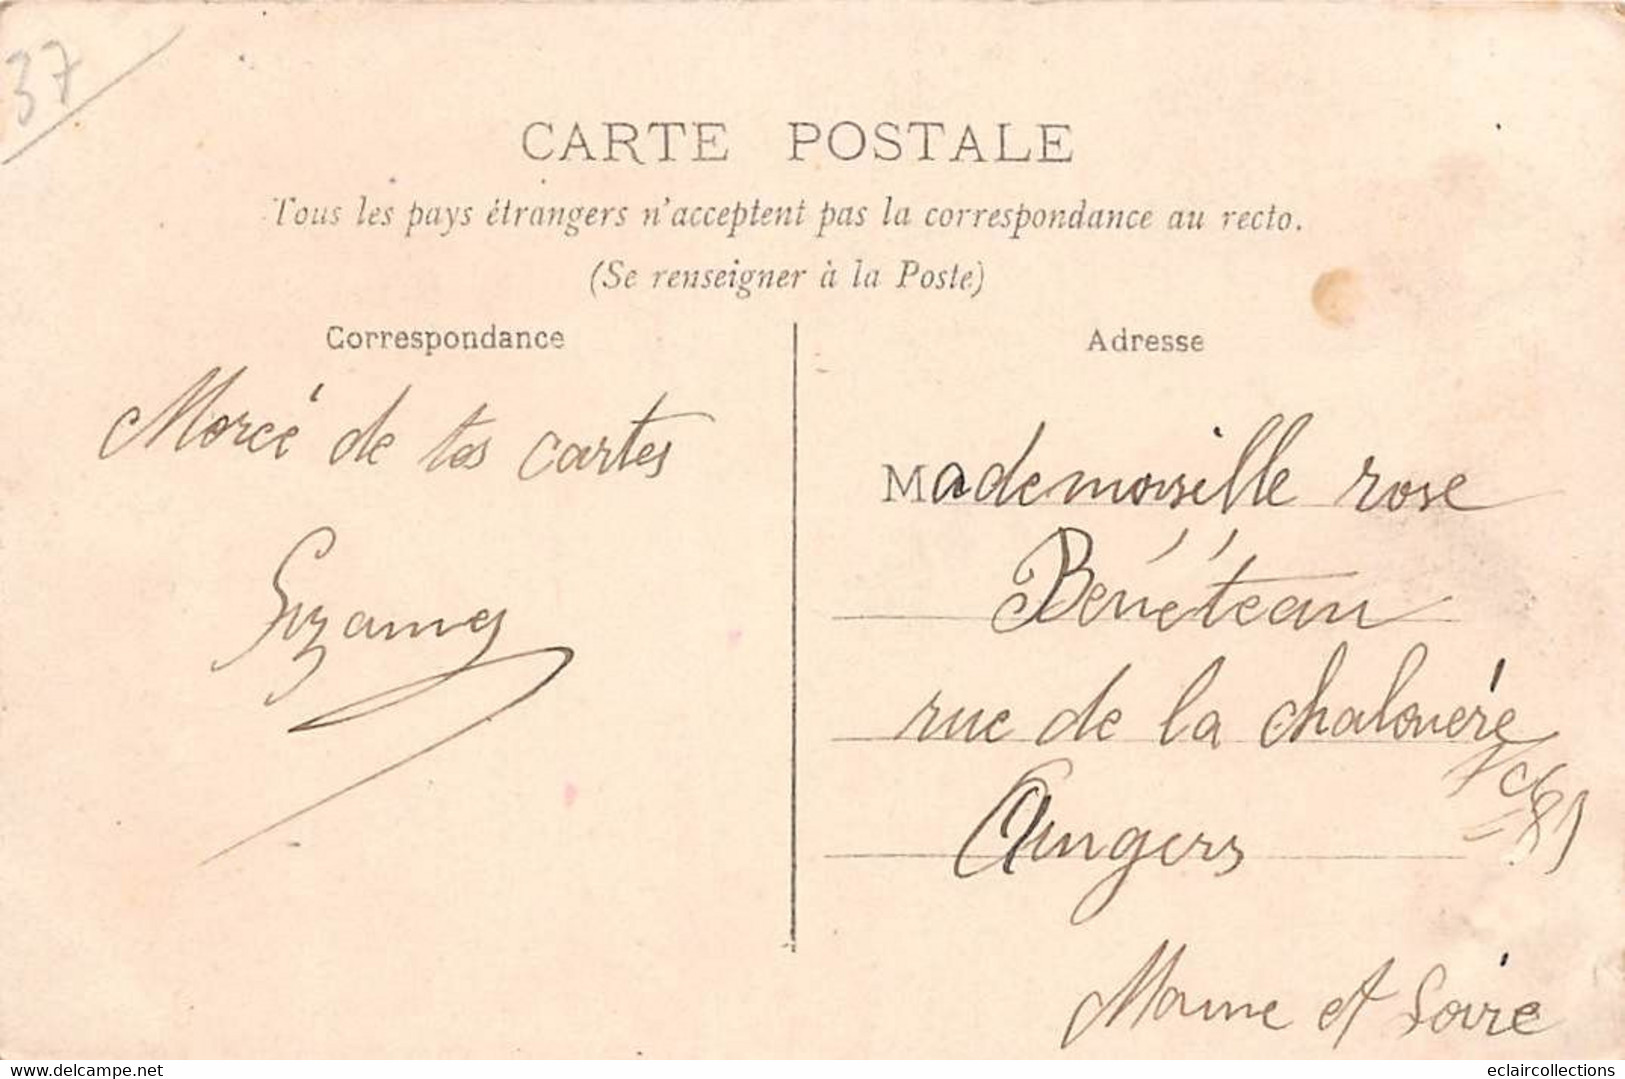 37
CARTE POSTALE
Tous les pays étrangers n'acceptent pas la correspondance au recto.
(Se renseigner à la Poste)
Correspondance
Morcé de tes cartes
Suzanne
Adresse
Mademoiselle rose
Bénéteau
rue de la chalouère
Angers
Maine et Loire
www.delcampe.net
eclaircollections